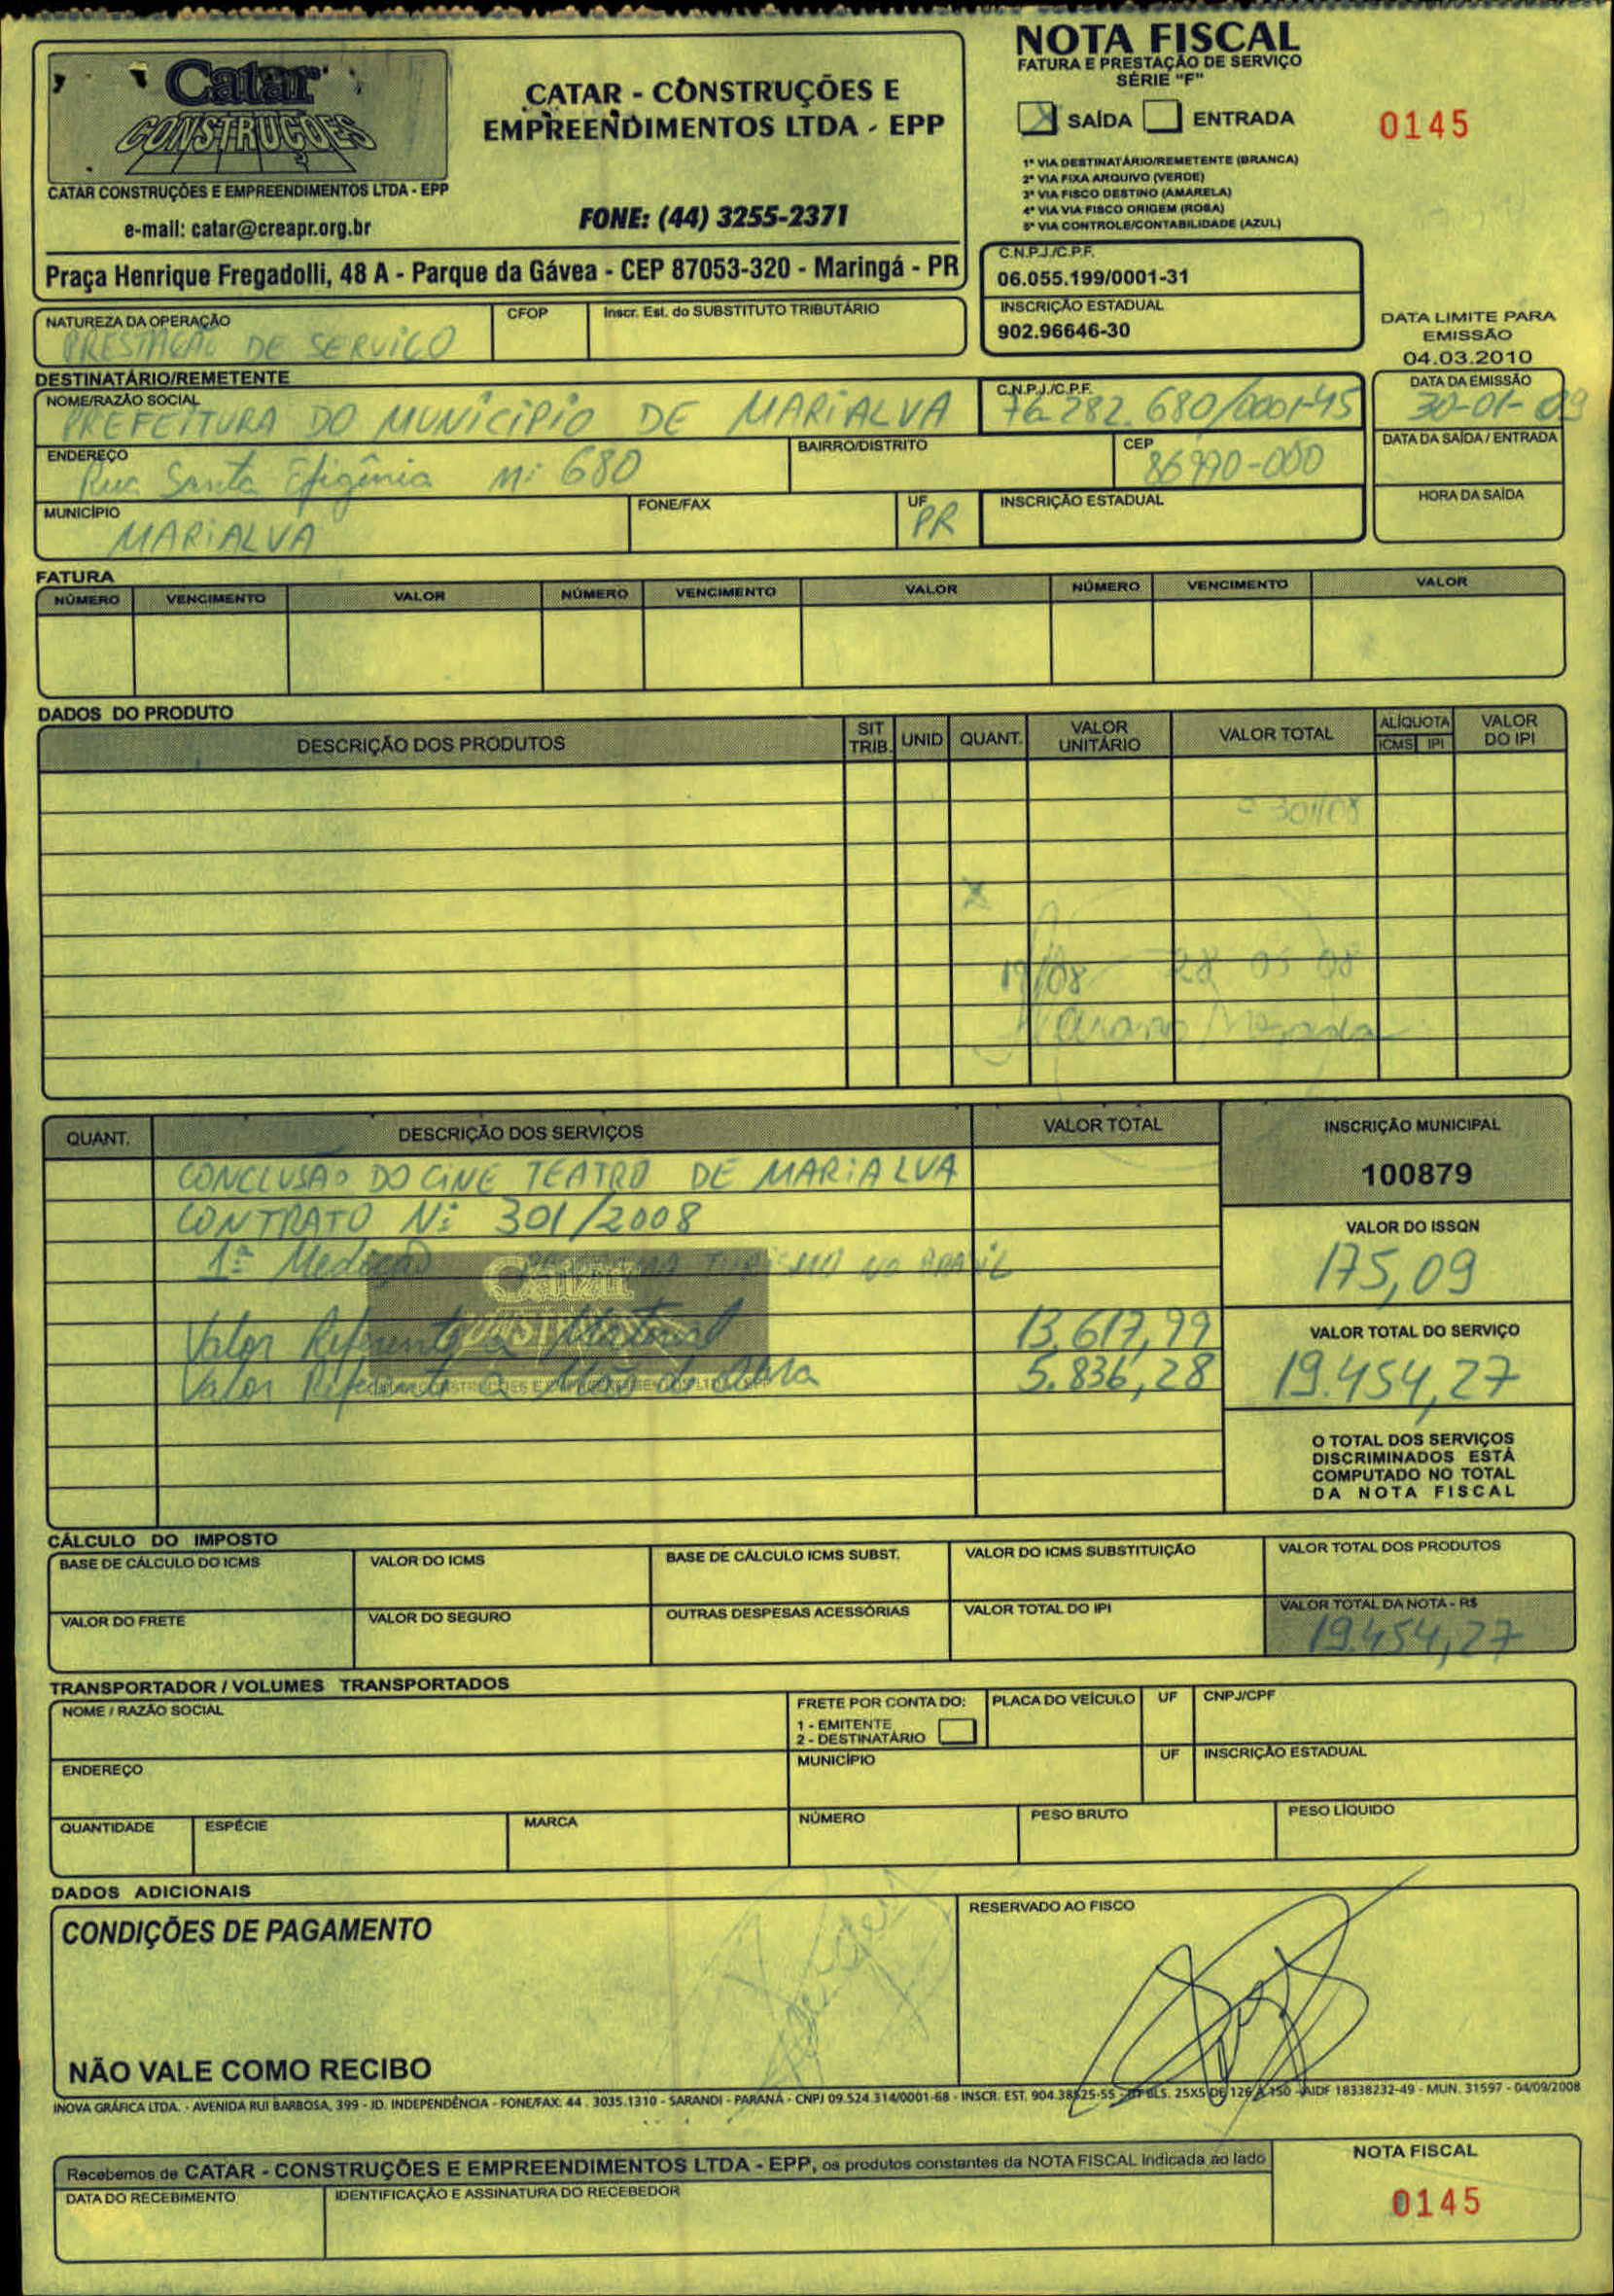 NOTA FISCAL
FATURA E PRESTAÇÃO DE SERVIÇO
SÉRIE "F"
SAÍDA ENTRADA
0145
1ª VIA DESTINATÁRIO/REMETENTE (BRANCA)
2ª VIA FIXA ARQUIVO (VERDE)
3ª VIA FISCO DESTINO (AMARELA)
4ª VIA VIA FISCO ORIGEM (ROSA)
5ª VIA CONTROLE/CONTABILIDADE (AZUL)
Catar
CONSTRUÇÕES
CATAR CONSTRUÇÕES E EMPREENDIMENTOS LTDA - EPP
e-mail: catar@creapr.org.br
CATAR - CONSTRUÇÕES E
EMPREENDIMENTOS LTDA - EPP
FONE: (44) 3255-2371
Praça Henrique Fregadolli, 48 A - Parque da Gávea - CEP 87053-320 - Maringá - PR
C.N.P.J./C.P.F.
06.055.199/0001-31
INSCRIÇÃO ESTADUAL
902.96646-30
DATA LIMITE PARA
EMISSÃO
04.03.2010
NATUREZA DA OPERAÇÃO CFOP Inscr. Est. do SUBSTITUTO TRIBUTÁRIO
PRESTAÇÃO DE SERVIÇO
DESTINATÁRIO/REMETENTE
NOME/RAZÃO SOCIAL C.N.P.J./C.P.F. DATA DA EMISSÃO
PREFEITURA DO MUNICÍPIO DE MARIALVA 76.282.680/0001-45 30-01-09
ENDEREÇO BAIRRO/DISTRITO CEP DATA DA SAÍDA / ENTRADA
Rua Santa Efigênia Nº 680 86990-000
MUNICÍPIO FONE/FAX UF INSCRIÇÃO ESTADUAL HORA DA SAÍDA
MARIALVA PR
FATURA
NÚMERO VENCIMENTO VALOR NÚMERO VENCIMENTO VALOR NÚMERO VENCIMENTO VALOR
DADOS DO PRODUTO
DESCRIÇÃO DOS PRODUTOS SIT TRIB. UNID QUANT. VALOR UNITÁRIO VALOR TOTAL ALÍQUOTA ICMS IPI VALOR DO IPI
301/08
19/08 28 05 08
QUANT. DESCRIÇÃO DOS SERVIÇOS VALOR TOTAL INSCRIÇÃO MUNICIPAL
100879
CONCLUSÃO DO CINE TEATRO DE MARIALVA
CONTRATO Nº 301/2008
1ª Medição TURISMO NO BRASIL
Valor Referente a Material 13.617,99
Valor Referente a Mão de Obra 5.836,28
VALOR DO ISSQN
175,09
VALOR TOTAL DO SERVIÇO
19.454,27
O TOTAL DOS SERVIÇOS
DISCRIMINADOS ESTÁ
COMPUTADO NO TOTAL
DA NOTA FISCAL
Catar
CÁLCULO DO IMPOSTO
BASE DE CÁLCULO DO ICMS VALOR DO ICMS BASE DE CÁLCULO ICMS SUBST. VALOR DO ICMS SUBSTITUIÇÃO VALOR TOTAL DOS PRODUTOS
VALOR DO FRETE VALOR DO SEGURO OUTRAS DESPESAS ACESSÓRIAS VALOR TOTAL DO IPI VALOR TOTAL DA NOTA - R$
19.454,27
TRANSPORTADOR / VOLUMES TRANSPORTADOS
NOME / RAZÃO SOCIAL FRETE POR CONTA DO: PLACA DO VEÍCULO UF CNPJ/CPF
1 - EMITENTE
2 - DESTINATÁRIO
ENDEREÇO MUNICÍPIO UF INSCRIÇÃO ESTADUAL
QUANTIDADE ESPÉCIE MARCA NÚMERO PESO BRUTO PESO LÍQUIDO
DADOS ADICIONAIS
CONDIÇÕES DE PAGAMENTO
RESERVADO AO FISCO
NÃO VALE COMO RECIBO
INOVA GRÁFICA LTDA. - AVENIDA RUI BARBOSA, 399 - JD. INDEPENDÊNCIA - FONE/FAX: 44 . 3035.1310 - SARANDI - PARANÁ - CNPJ 09.524.314/0001-68 - INSCR. EST. 904.38525-55 - BLS. 25X5 DE 126 A 150 - AIDF 18338232-49 - MUN. 31597 - 04/09/2008
Recebemos de CATAR - CONSTRUÇÕES E EMPREENDIMENTOS LTDA - EPP, os produtos constantes da NOTA FISCAL indicada ao lado
DATA DO RECEBIMENTO IDENTIFICAÇÃO E ASSINATURA DO RECEBEDOR
NOTA FISCAL
0145